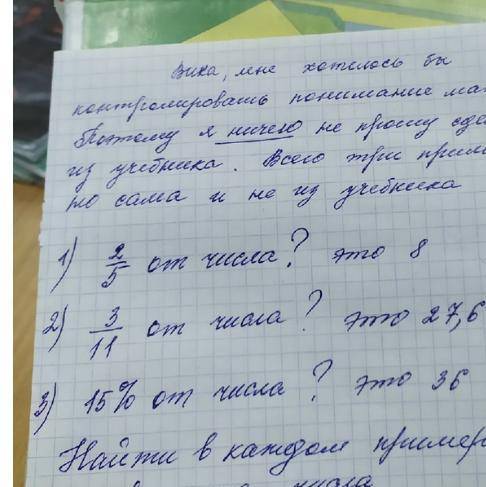 Вика, мне хотелось бы
контролировать понимание
Поэтому я ничего не прошу
из учебника. Всего три
но сама и не из учебника
1) 2/5 от числа? это 8
2) 3/11 от числа? это 27,6
3) 15% от числа? это 36
Найти в каждом
числа